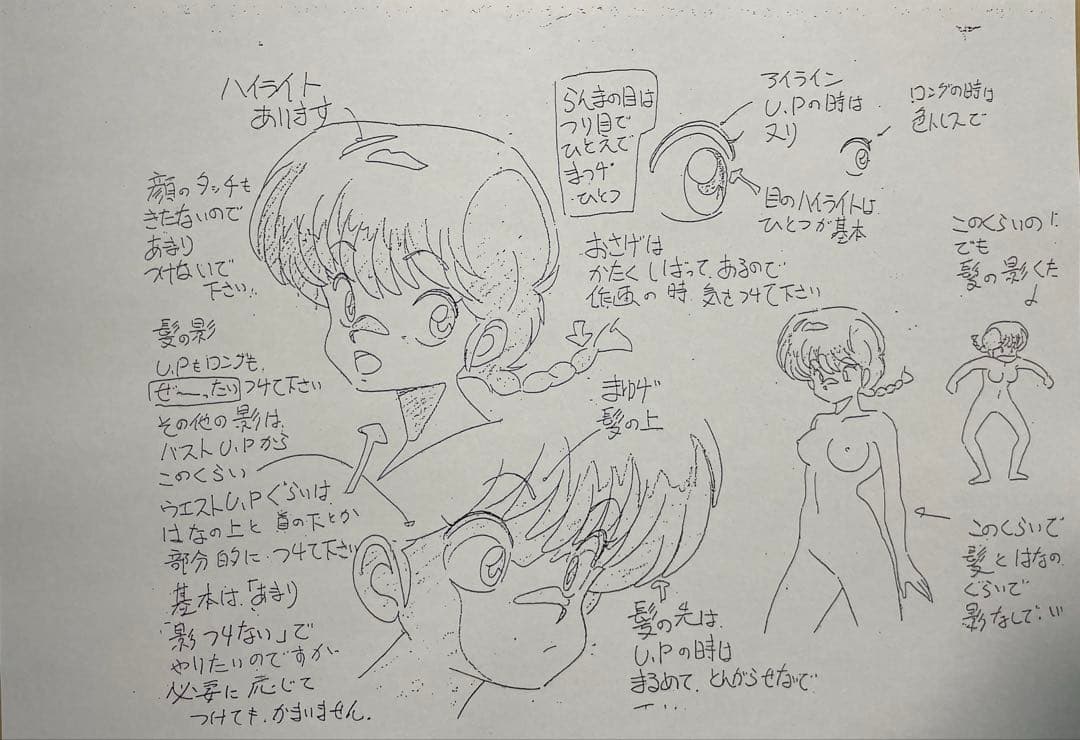 ハイライト
あります
顔のタッチも
きたないので
あまり
つけないで
下さい!!
髪の影
U.Pもロングも、
ぜ〜ったいつけて下さい
その他の影は、
バストU.Pから
このくらい
ウエストU.Pぐらいは、
はなの上と首の下とか
部分的に つけて下さい
基本は、「あまり
影つけない」で
やりたいのですが
必要に応じて
つけても、かまいません。
らんまの目は
つり目で
ひとえで
まつげ
ひとつ
アイライン
U.Pの時は
ヌリ
ロングの時は
色トレスで
目のハイライトは
ひとつが基本
おさげは
かたく しばって、あるので
作画の時 気をつけて下さい
まゆげ
髪の上
髪の先は、
U.Pの時は
まるめて、とんがらせないで
このくらいの
でも
髪の影
このくらいで
髪とはなの
ぐらいで
影なしで